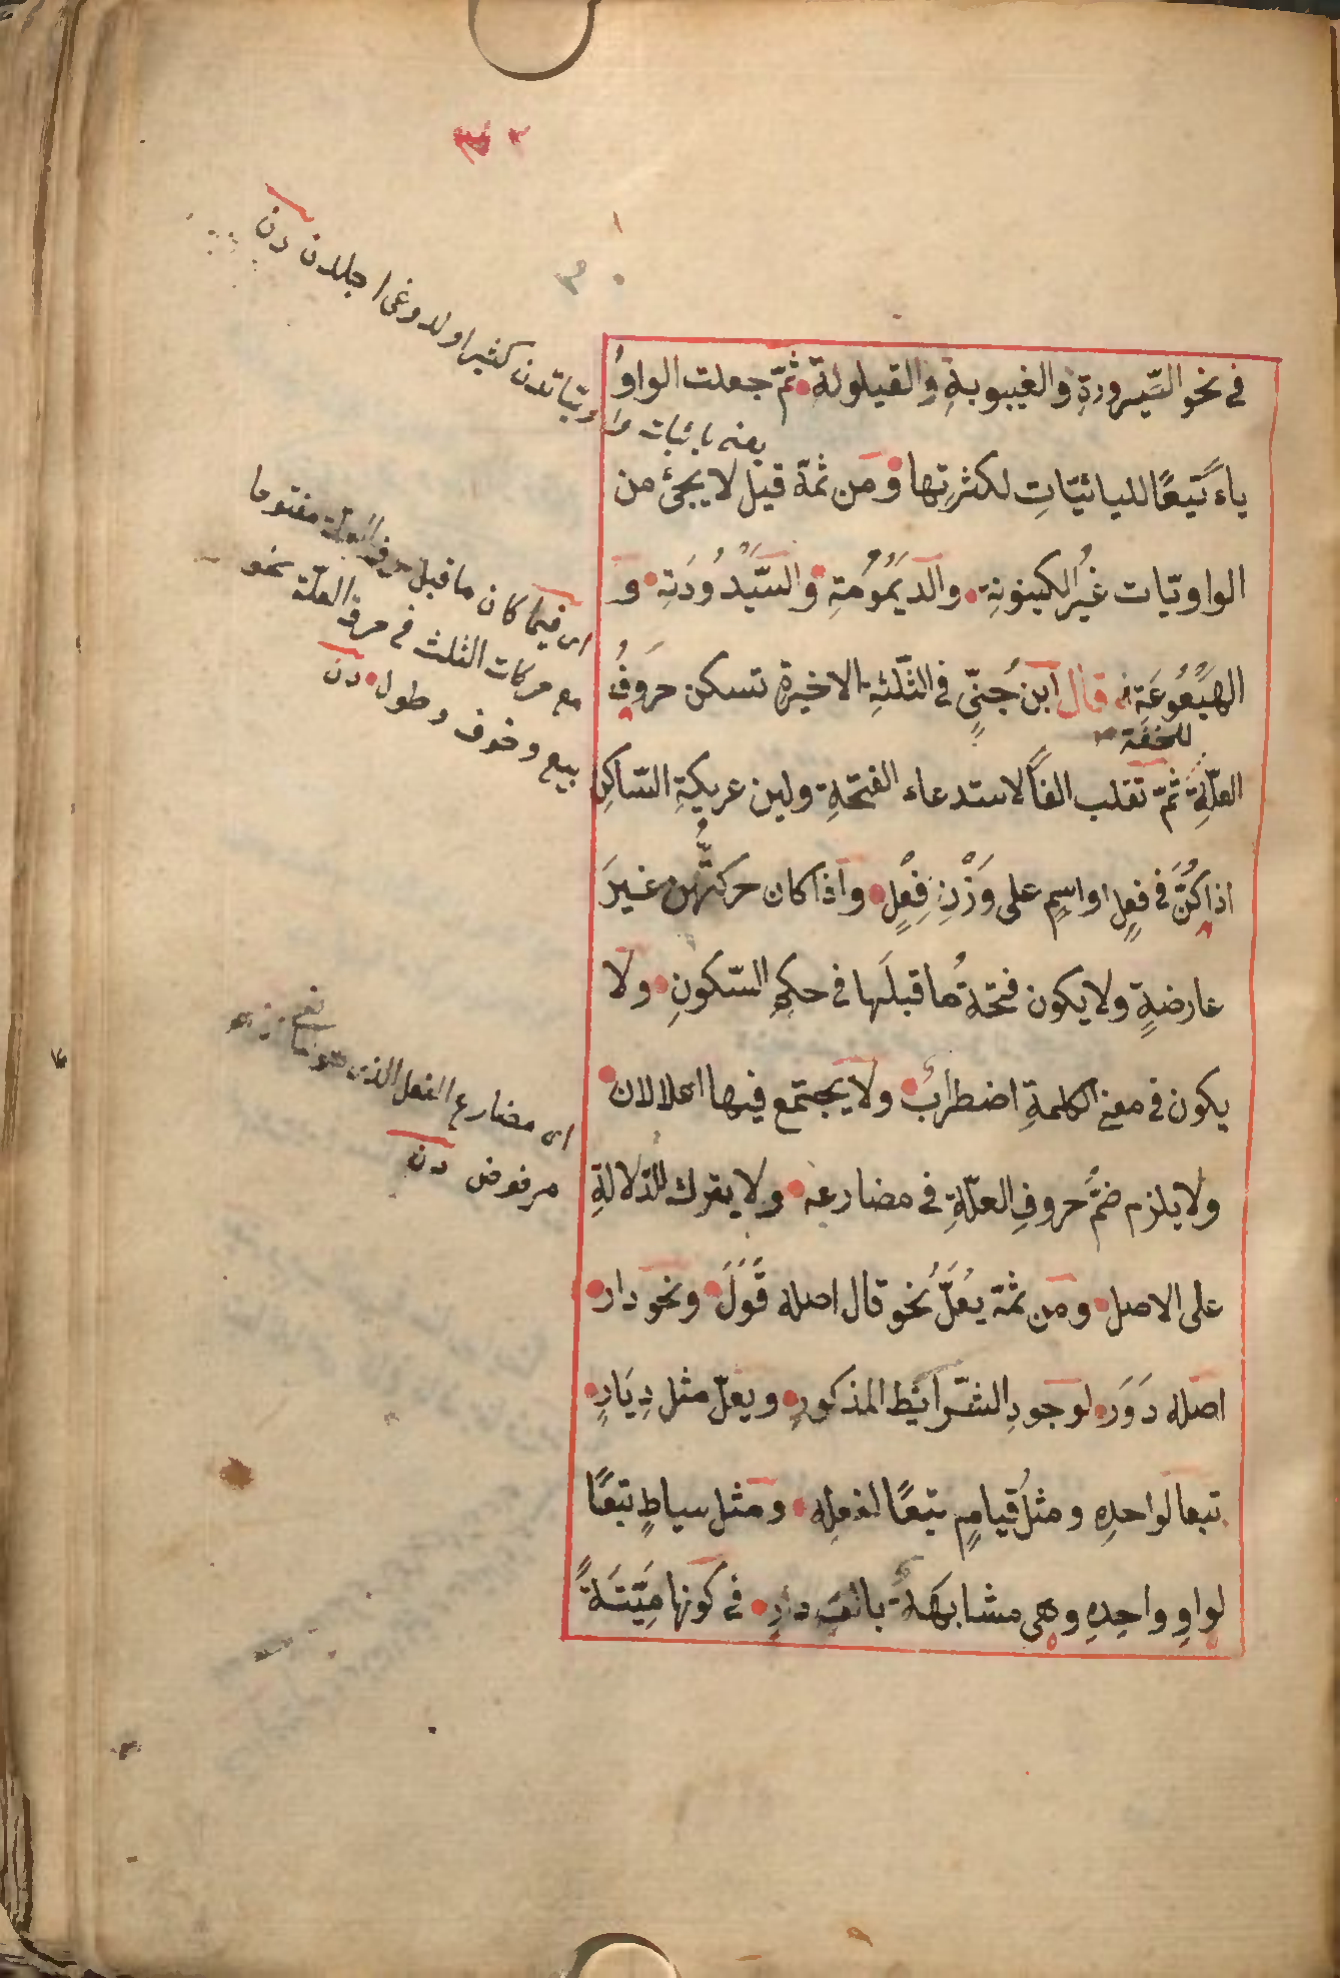 في نحو السّيرورةِ والغيبوبةِ والقيلولةِ ثمّ جعلت الواوُ
ياءً تَبعًا لليائيّاتِ لكثرتِها ومَن ثمّة قيل لا يجئ من
الواويّات غيرُ الكينونةِ والديمُومُةِ والسَّيِّدُودَةِ و
الهَيعُوعَةِ قال ابن جُنيٍّ في الثّلثةِ الاخيرةِ تسكن حروفُ
العلّةِ ثمّ تقلب الفاً لاستدعاء الفتحةِ ولين عريكةِ السّاكنِ
للخفة
اذا كُنَّ في فعلٍ او اسمٍ على وَزْنِ فِعْلٍ واذا كان حركتُهن غيرَ
عارضةٍ ولا يكون فتحةُ ما قبلَها في حكمِ السّكونِ ولا
يكون في معنى الكلمةِ اضطرابٌ ولا يجتمع فيها اعلالان
ولا يلزم ضمُّ حروفِ العلّةِ في مضارعه ولا يترك للدّلالةِ
على الاصل ومن ثمّة يُعَلُّ نحو قال اصله قَوَلَ ونحو دار
اصله دَوَر لوجودِ الشّرائط المذكورِ ويعلّ مثل دِيَارٍ
تبعا لواحدِهِ ومثلُ قيامٍ تبعًا لفعلِه ومثل سياطٍ تبعًا
لواوِ واحِدِهِ وهي مشابهَةٌ بالفِ دارٍ في كونها مَيِّتَةً
يعنى يائيات واويّاتدن كثير اولدوغى اجلدن دن
اى فيما كان ما قبل حرف العلة مفتوحا
مع حركات الثلث في حرف العلّة نحو
بيع وخوف وطول دن
اى مضارع الفعل الذى
مرفوض دن